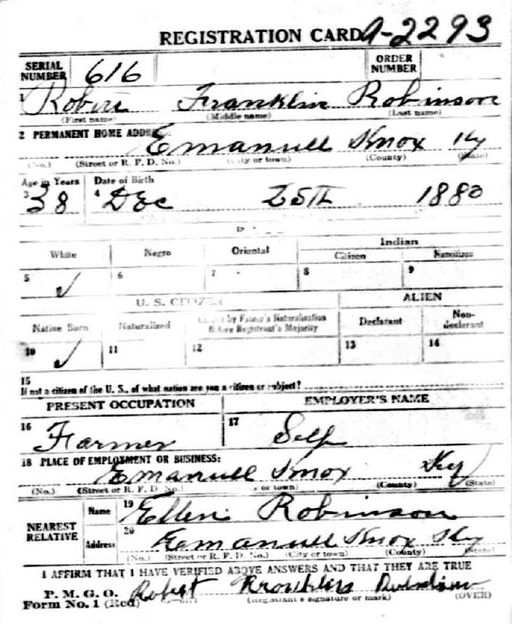 REGISTRATION CARD A-2293
SERIAL NUMBER 616 ORDER NUMBER
Robert Franklin Robinson
(First name) (Middle name) (Last name)
2 PERMANENT HOME ADDRESS:
Emanuell Knox Ky
(No.) (Street or R. F. D. No.) (City or town) (County) (State)
Age in Years Date of Birth
3 38 4 Dec 25th 1880
White Negro Oriental Indian
Citizen Noncitizen
5 ✓ 6 7 8 9
U. S. CITIZEN ALIEN
Native Born Naturalized Citizen by Father's Naturalization Before Registrant's Majority Declarant Non-declarant
10 ✓ 11 12 13 14
15
If not a citizen of the U. S., of what nation are you a citizen or subject?
PRESENT OCCUPATION EMPLOYER'S NAME
16 Farmer 17 Self
18 PLACE OF EMPLOYMENT OR BUSINESS:
Emanuell Knox Ky
(No.) (Street or R. F. D. No.) (City or town) (County) (State)
NEAREST RELATIVE Name 19 Ellen Robinson
Address 20 Eemanuell Knox Ky
(No.) (Street or R. F. D. No.) (City or town) (County) (State)
I AFFIRM THAT I HAVE VERIFIED ABOVE ANSWERS AND THAT THEY ARE TRUE
P. M. G. O.
Form No. 1 (Red) Robert
(Registrant's signature or mark) (OVER)